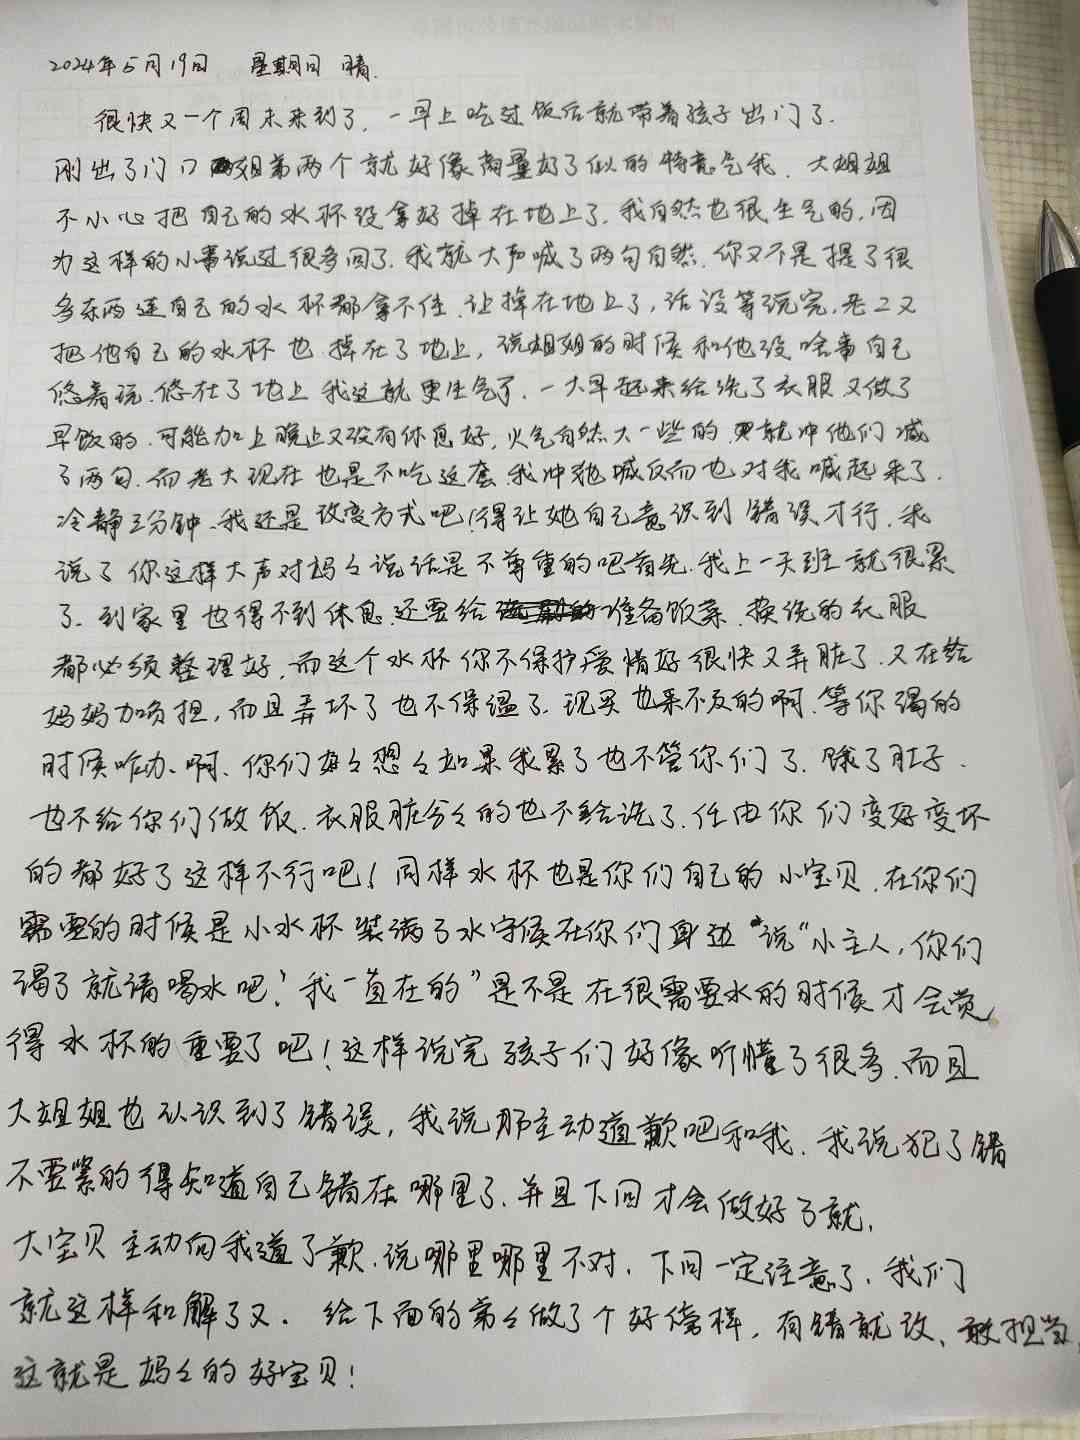 2024年5月19日 星期日 晴.
很快又一个周末来到了.一早上吃过饭后就带着孩子出门了.
刚出了门口姐弟两个就好像商量好了似的特意气我.大姐姐
不小心把自己的水杯没拿好掉在地上了.我自然也很生气的,因
为这样的小事说过很多回了.我就大声喊了两句自然.你又不是提了很
多东西连自己的水杯都拿不住.让掉在地上了,话没等说完,老二又
把他自己的水杯也掉在了地上,说姐姐的时候和他没啥事自己
悠着玩.悠在了地上我这就更生气了.一大早起来给洗了衣服又做了
早饭的.可能加上晚上又没有休息好,火气自然大一些的就冲他们喊
了两句.而老大现在也是不吃这套.我冲她喊反而也对我喊起来了.
冷静三分钟.我还是改变方式吧!得让她自己意识到错误才行.我
说了你这样大声对妈々说话是不尊重的吧首先.我上一天班就很累
了.到家里也得不到休息.还要给准备饭菜.换洗的衣服
都必须整理好.而这个水杯你不保护爱惜好很快又弄脏了.又在给
妈妈加负担,而且弄坏了也不保温了.现买也来不及的啊.等你渴的
时候咋办、啊、你们好々想々如果我累了也不管你们了.饿了肚子.
也不给你们做饭.衣服脏兮々的也不给洗了.任由你们变好变坏
的都好了这样不行吧!同样水杯也是你们自己的小宝贝.在你们
需要的时候是小水杯装满了水守候在你们身边"说"小主人,你们
渴了就请喝水吧!我一直在的"是不是在很需要水的时候才会觉
得水杯的重要了吧!这样说完孩子们好像听懂了很多.而且
大姐姐也认识到了错误,我说那主动道歉吧和我.我说犯了错
不要紧的得知道自己错在哪里了.并且下回才会做好了就.
大宝贝主动向我道了歉.说哪里哪里不对.下回一定注意了.我们
就这样和解了又.给下面的弟々做了个好榜样,有错就改、敢担当
这就是妈々的好宝贝!